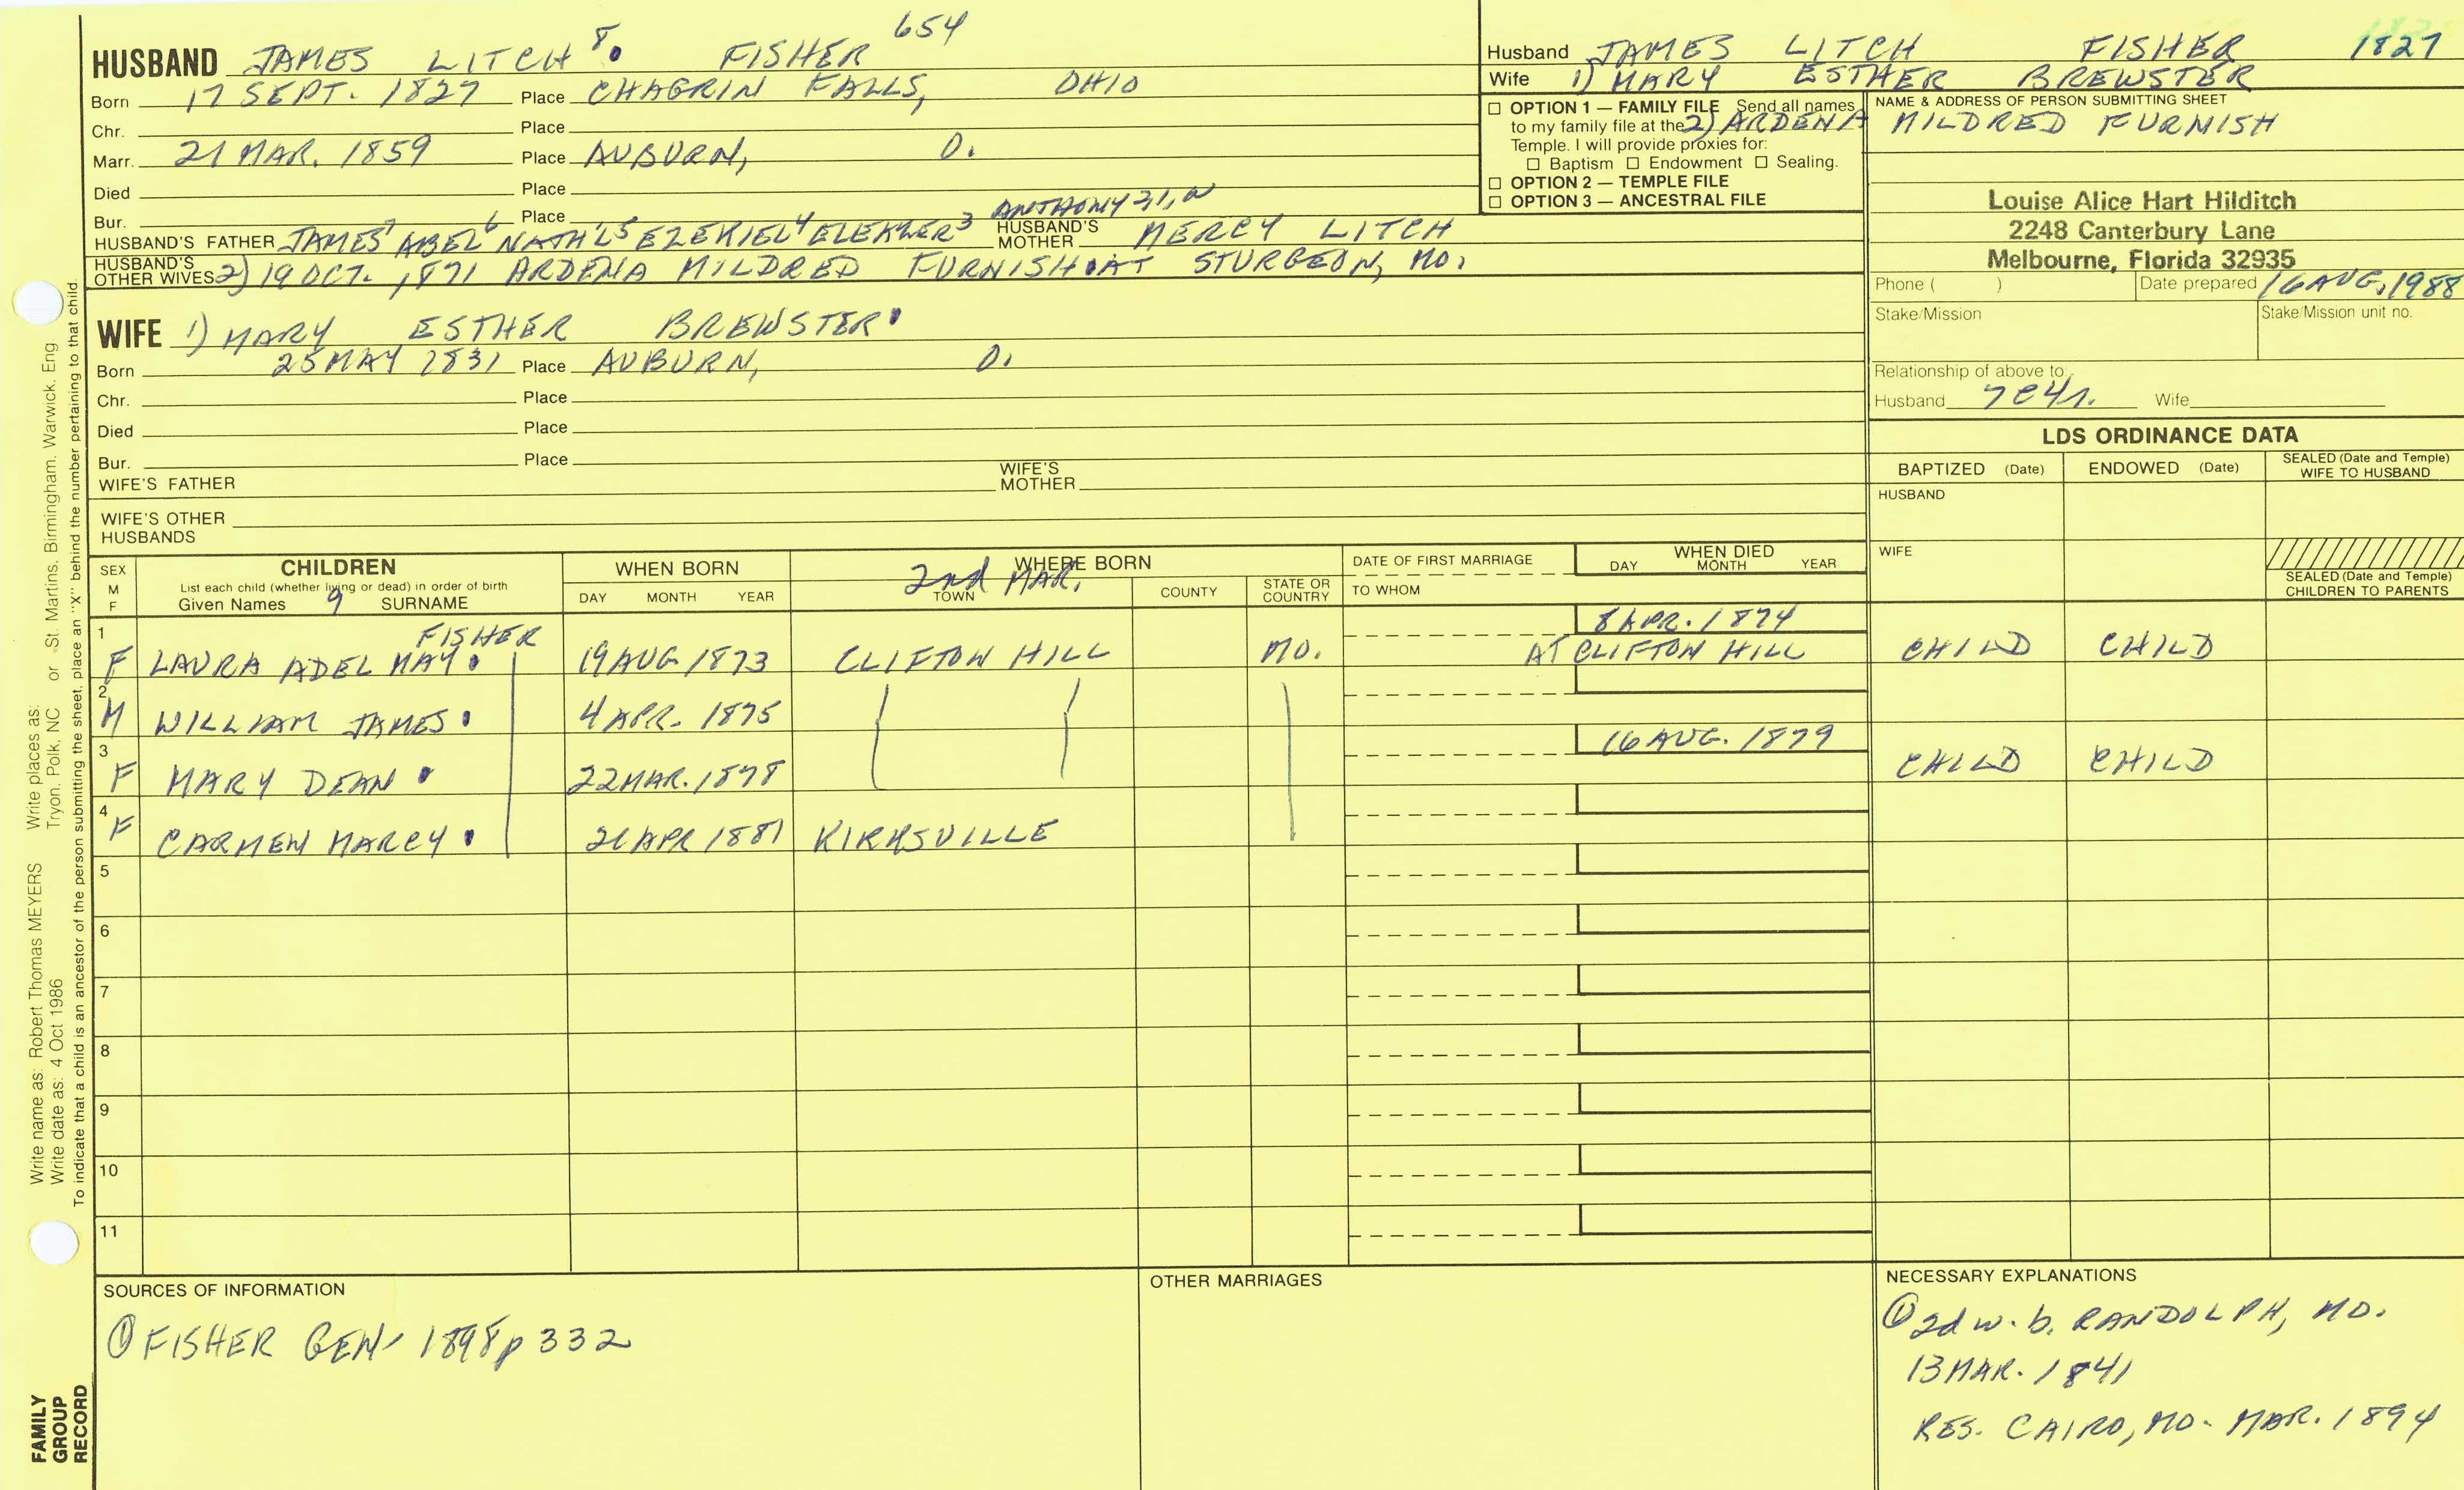 654
HUSBAND JAMES LITCH 8. FISHER
Born 17 SEPT. 1827 Place CHAGRIN FALLS, OHIO
Chr. Place
Marr. 21 MAR. 1859 Place AUBURN, O.
Died Place
Bur. Place
ANTHONY 2,1,
HUSBAND'S FATHER JAMES7 ABEL6 NATH'L5 EZEKIEL4 ELEKZER3 HUSBAND'S MOTHER MERCY LITCH
HUSBAND'S OTHER WIVES 2) 19 OCT. 1871 ARDENA MILDRED FURNISH AT STURGEON, MO.
WIFE 1) MARY ESTHER BREWSTER
Born 25 MAY 1831 Place AUBURN, O.
Chr. Place
Died Place
Bur. Place
WIFE'S FATHER WIFE'S MOTHER
WIFE'S OTHER HUSBANDS
Husband JAMES LITCH FISHER 1827
Wife 1) MARY ESTHER BREWSTER
2) ARDENA MILDRED FURNISH
☐ OPTION 1 — FAMILY FILE Send all names
to my family file at the
Temple. I will provide proxies for:
☐ Baptism ☐ Endowment ☐ Sealing.
☐ OPTION 2 — TEMPLE FILE
☐ OPTION 3 — ANCESTRAL FILE
NAME & ADDRESS OF PERSON SUBMITTING SHEET
Louise Alice Hart Hilditch
2248 Canterbury Lane
Melbourne, Florida 32935
Phone ( ) Date prepared 16 AUG, 1988
Stake/Mission Stake/Mission unit no.
Relationship of above to:
Husband 7C4r. Wife
LDS ORDINANCE DATA
BAPTIZED (Date) ENDOWED (Date) SEALED (Date and Temple) WIFE TO HUSBAND
HUSBAND
WIFE
SEALED (Date and Temple) CHILDREN TO PARENTS
SEX M F
CHILDREN
List each child (whether living or dead) in order of birth
Given Names 9 SURNAME
WHEN BORN
DAY MONTH YEAR
WHERE BORN
2nd MAR.
TOWN COUNTY STATE OR COUNTRY
DATE OF FIRST MARRIAGE
TO WHOM
WHEN DIED
DAY MONTH YEAR
1 FISHER 8 APR. 1874
F LAURA ADEL MAY 19 AUG 1873 CLIFTON HILL MO. AT CLIFTON HILL CHILD CHILD
2
M WILLIAM JAMES 4 APR. 1875
3 16 AUG. 1879
F MARY DEAN 22 MAR. 1878 CHILD CHILD
4
F CARMEN MARCY 21 APR 1881 KIRKSVILLE
5
6
7
8
9
10
11
SOURCES OF INFORMATION
① FISHER GEN 1898 p 332
OTHER MARRIAGES
NECESSARY EXPLANATIONS
① 2d w. b. RANDOLPH, MO.
13 MAR. 1841
RES. CAIRO, MO. MAR. 1894
Write name as: Robert Thomas MEYERS Write places as: Tryon, Polk, NC or St. Martins, Birmingham, Warwick, Eng
Write date as: 4 Oct 1986
To indicate that a child is an ancestor of the person submitting the sheet, place an "X" behind the number pertaining to that child.
FAMILY
GROUP
RECORD